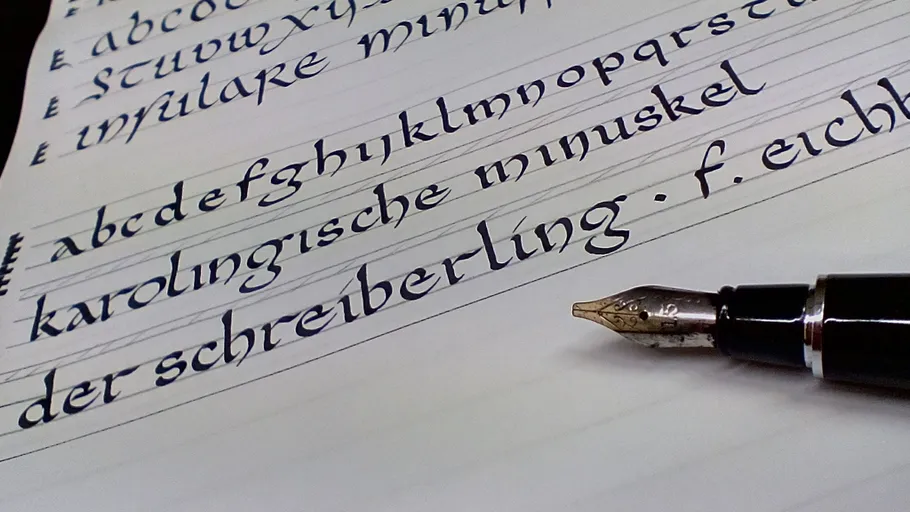 abcd
stuvwxy
insulare minu
abcdefghijklmnopqrstu
karolingische minuskel
der schreiberling · f. eichh
1.5